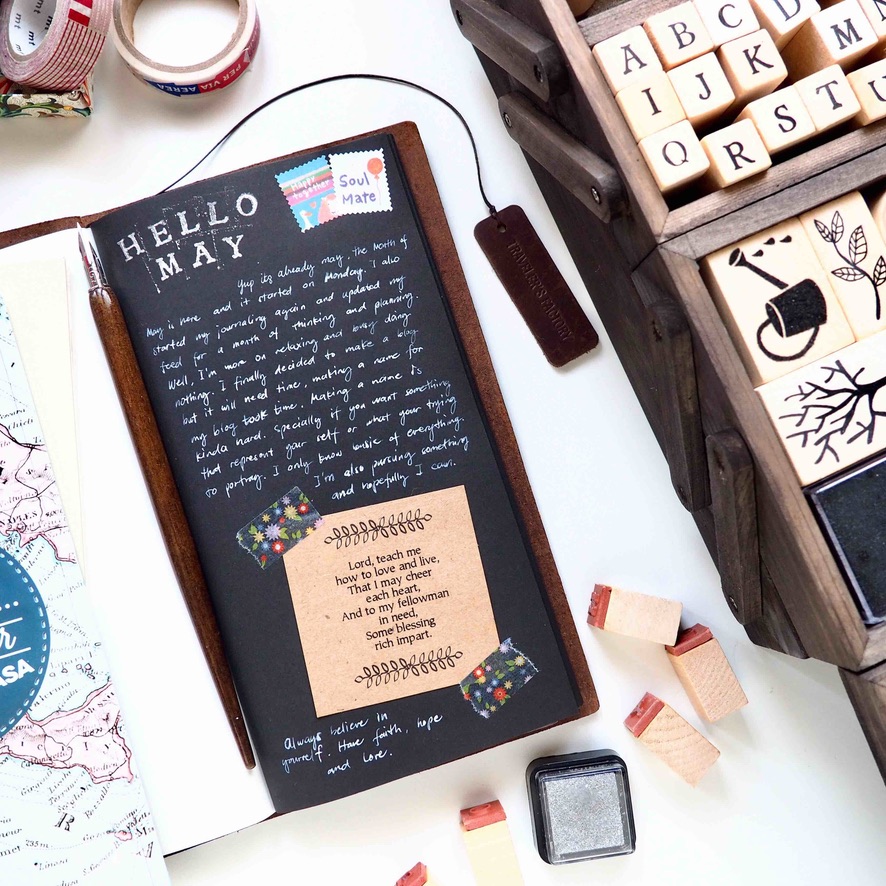 mt
PER VIA AEREA
HELLO
MAY
Happy
together
Soul
Mate
Yup its already may, the month of
May is here and it started on Monday. I also
started my journaling again and updated my
feed for a month of thinking and planning.
Well, I'm more on relaxing and busy doing
nothing. I finally decided to make a blog
but it will need time, making a name for
my blog took time. Making a name is
kinda hard. Specially if you want something
that represent your self or what your trying
to portray. I only know basic of everything.
I'm also pursuing something
and hopefully I can.
Lord, teach me
how to love and live,
That I may cheer
each heart,
And to my fellowman
in need,
Some blessing
rich impart.
Always believe in
yourself. Have faith, hope
and love.
TRAVELER'S FACTORY
A B C D
I J K M N
Q R S T U
ASA